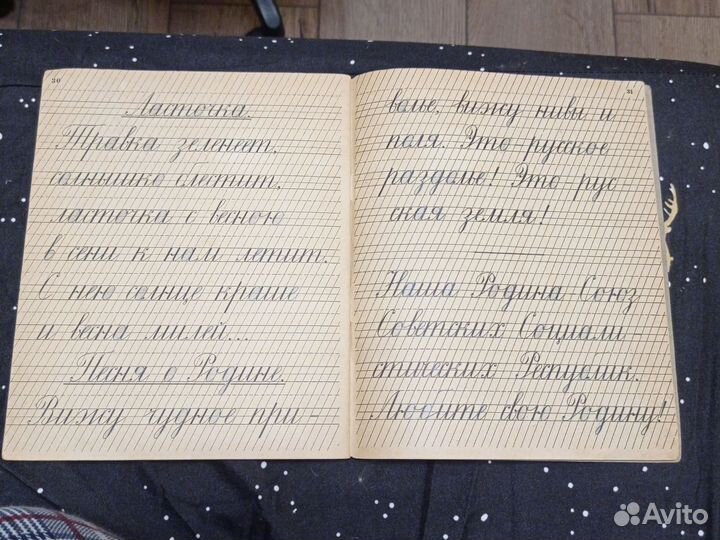 30
Ласточка.
Травка зеленеет,
солнышко блестит,
ласточка с весною
в сени к нам летит.
С нею солнце краше
и весна милей...
Песня о Родине.
Вижу чудное при-
31
волье, вижу нивы и
поля. Это русское
раздолье! Это рус-
ская земля!
Наша Родина Союз
Советских Социали-
стических Республик.
Любите свою Родину!
Avito